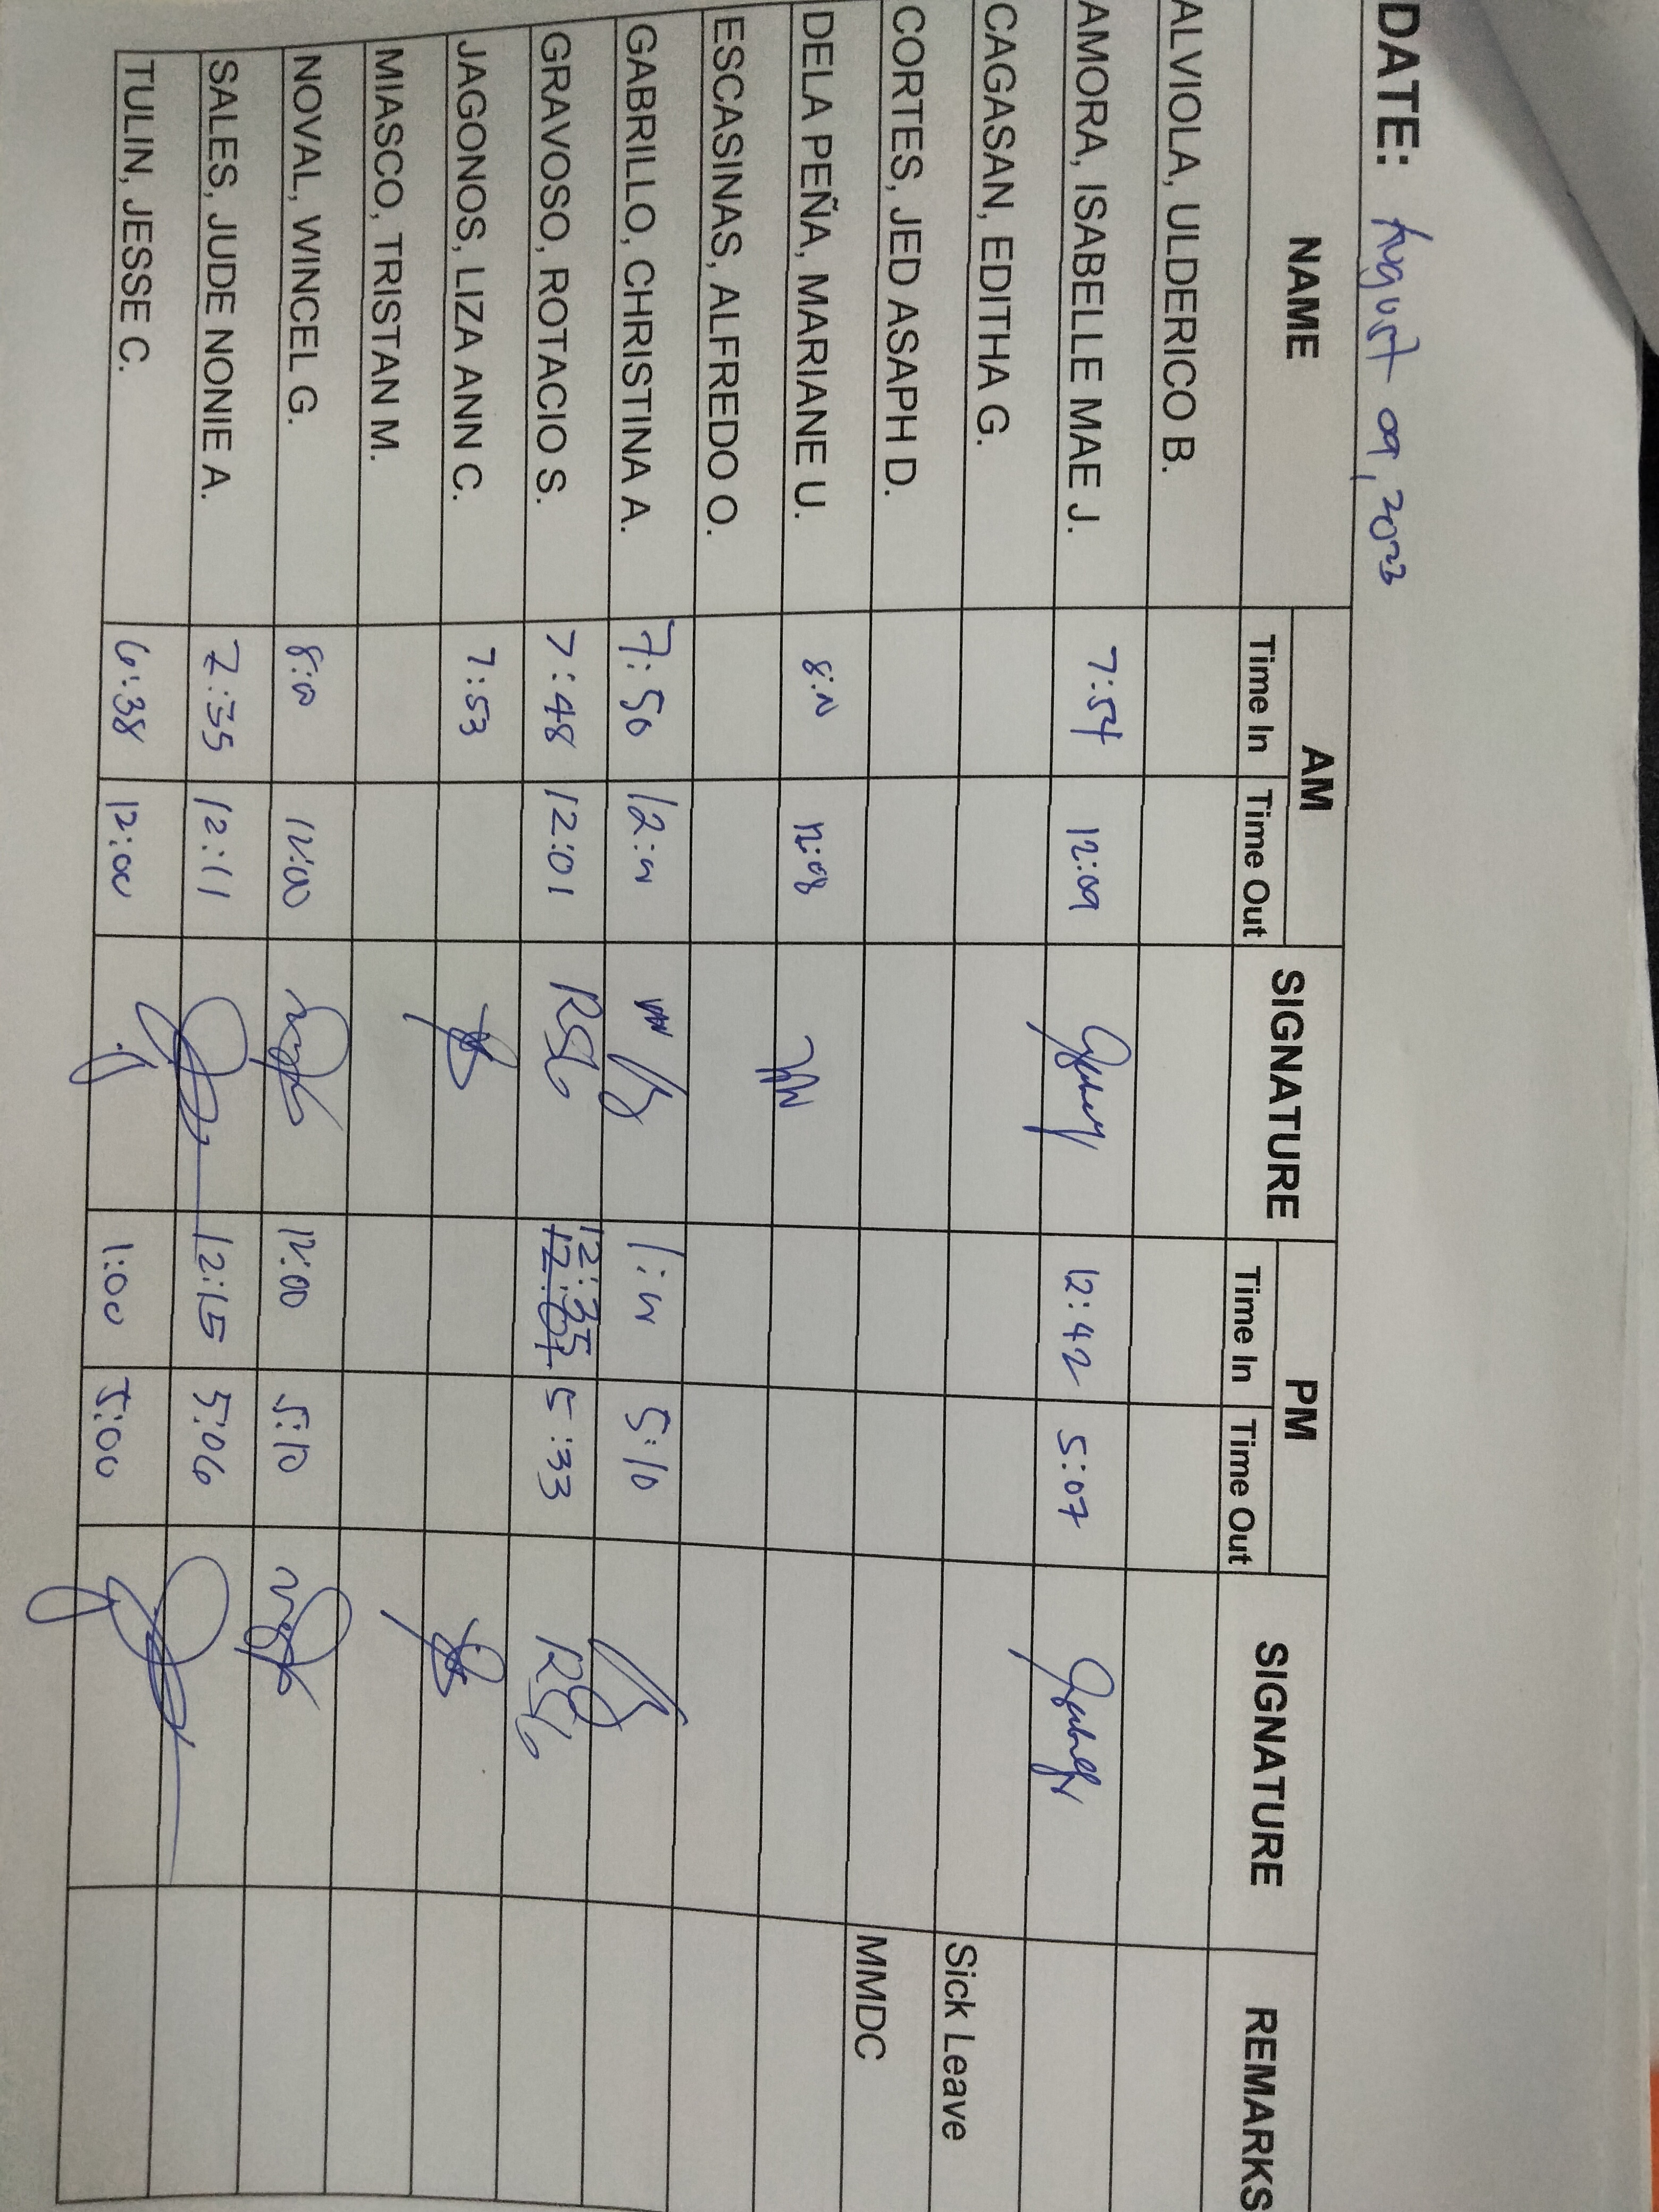 DATE: August 09, 2023
NAME AM SIGNATURE PM SIGNATURE REMARKS
Time In Time Out Time In Time Out
ALVIOLA, ULDERICO B.
AMORA, ISABELLE MAE J. 7:54 12:09 12:42 5:07
CAGASAN, EDITHA G. Sick Leave
CORTES, JED ASAPH D. MMDC
DELA PEÑA, MARIANE U. 12:08
ESCASINAS, ALFREDO O.
GABRILLO, CHRISTINA A. 7:50 5:10
GRAVOSO, ROTACIO S. 7:48 12:01 RSG 12:35 12:01 5:33 RSG
JAGONOS, LIZA ANN C. 7:53
MIASCO, TRISTAN M.
NOVAL, WINCEL G. 8:00 12:00 12:00 5:10
SALES, JUDE NONIE A. 7:35 12:11 12:15 5:06
TULIN, JESSE C. 6:38 12:00 1:00 5:00